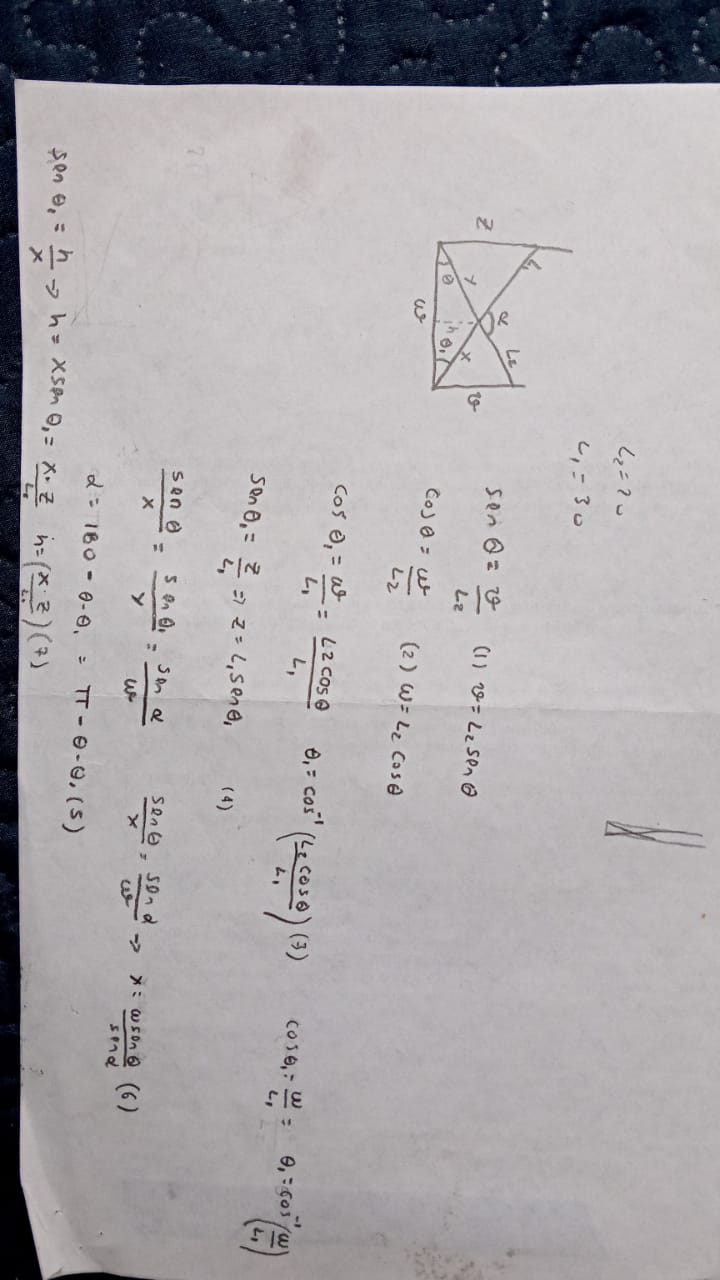 L₂ = 20
L₁ = 30
L₁
α
L₂
z
y
x
v
θ
h
θ₁
w
sen θ = v/L₂ (1) v = L₂ sen θ
cos θ = w/L₂ (2) w = L₂ cos θ
cos θ₁ = w/L₁ = L2 cos θ/L₁ θ₁ = cos⁻¹(L₂ cos θ/L₁) (3) cos θ₁ = w/L₁ = θ₁ = cos⁻¹(w/L₁)
sen θ₁ = z/L₁ => z = L₁ sen θ₁ (4)
sen θ/x = sen θ₁/y = sen α/w sen θ/x = sen α/w → x = w sen θ/sen α (6)
α = 180 - θ - θ₁ = π - θ - θ₁ (5)
sen θ₁ = h/x → h = x sen θ₁ = x · z/L₁ h = (x · z/L₁) (7)